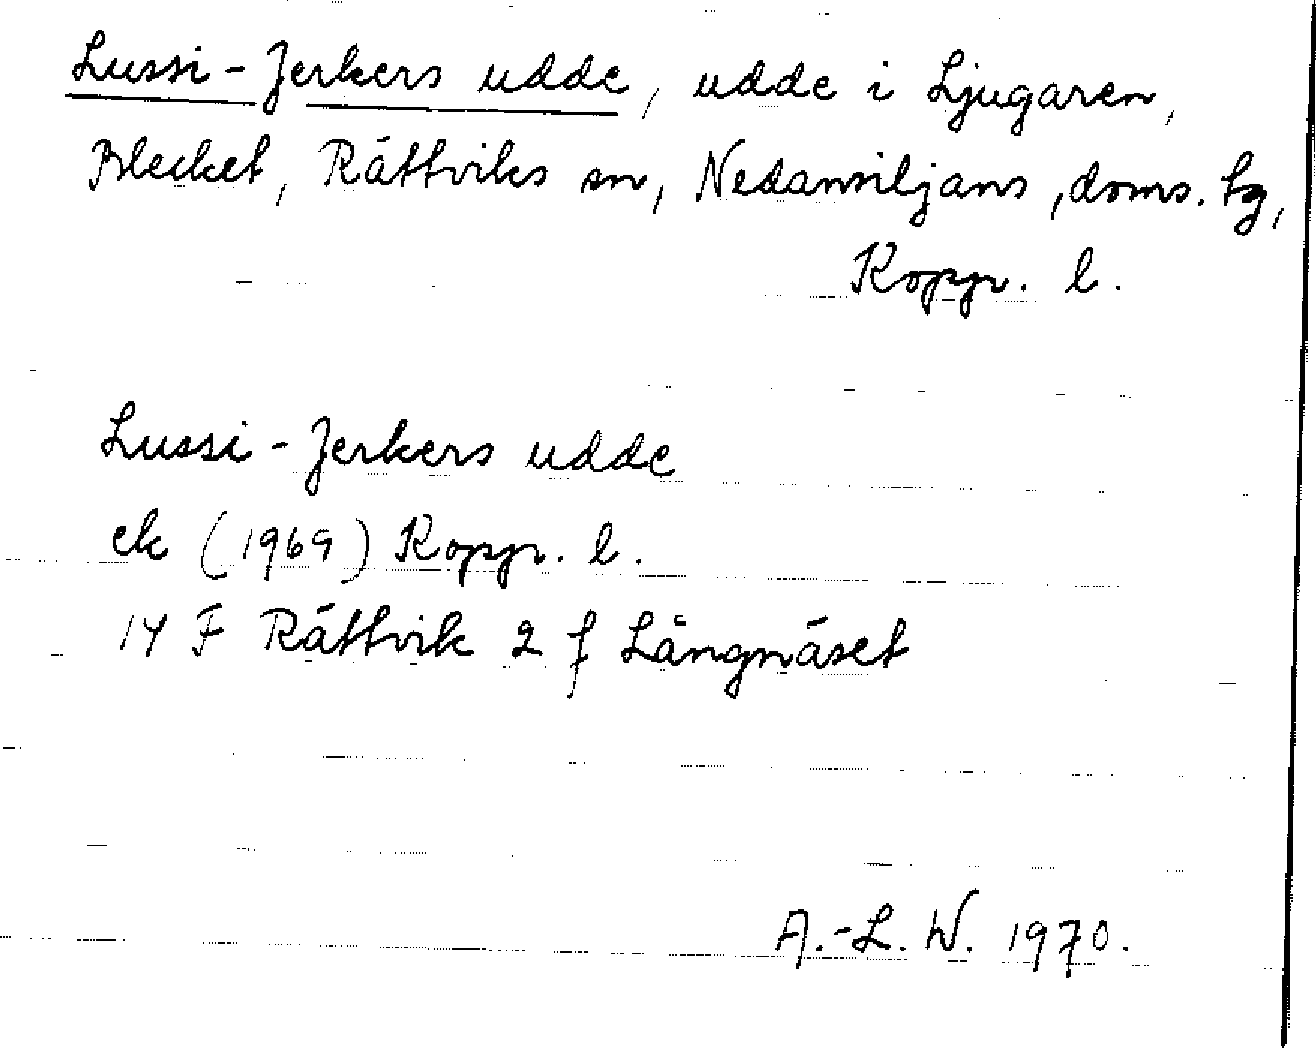 Lussi-Jerkers udde, udde i Ljugaren,
Blecket, Rättviks sn, Nedansiljans, doms. tg,
Koppr. l.
Lussi-Jerkers udde
ek (1969) Koppr. l.
14 F Rättvik 2 f Långnäset
A.-L. W. 1970.